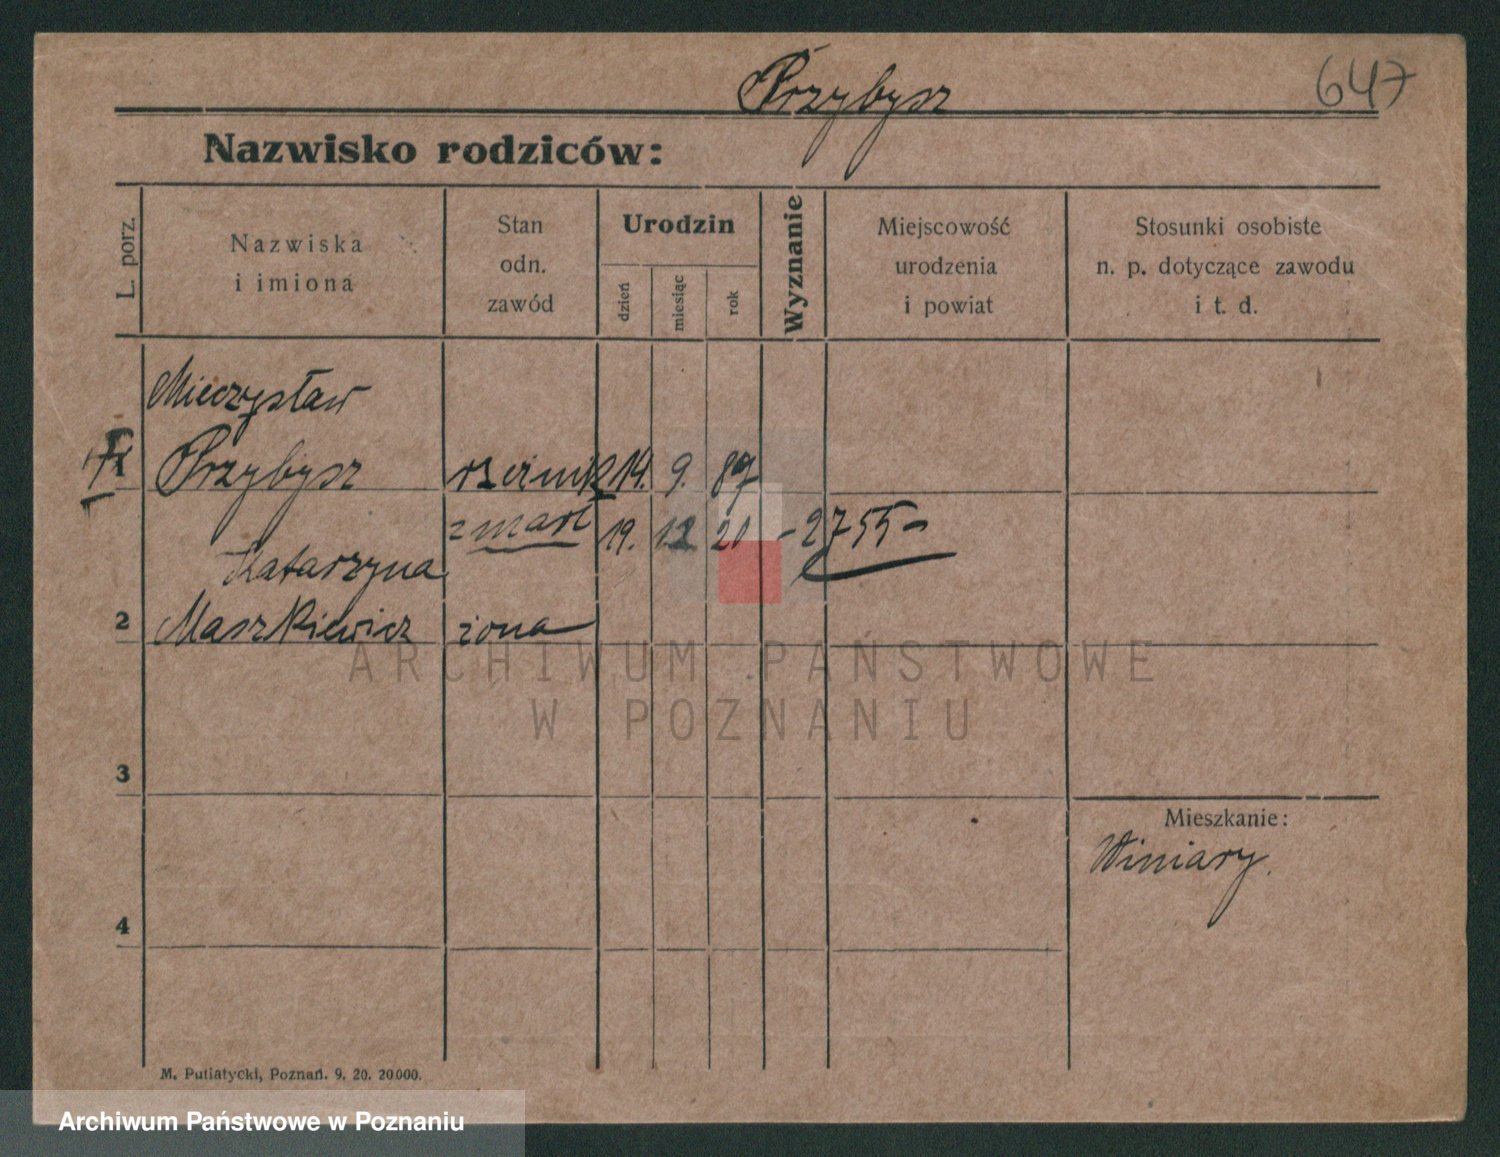 Przybysz 647
Nazwisko rodziców:
L. porz.
Nazwiska
i imiona
Stan
odn.
zawód
Urodzin
dzień
miesiąc
rok
Wyznanie
Miejscowość
urodzenia
i powiat
Stosunki osobiste
n. p. dotyczące zawodu
i t. d.
Mieczysław
Przybysz rzeźnik 14. 9. 87
zmarł 19. 12 20 - 2755 -
Katarzyna
2 Maszkiewicz żona
ARCHIWUM PAŃSTWOWE
W POZNANIU
3
Mieszkanie:
Winiary.
4
M. Putiatycki, Poznań. 9. 20. 20000.
Archiwum Państwowe w Poznaniu